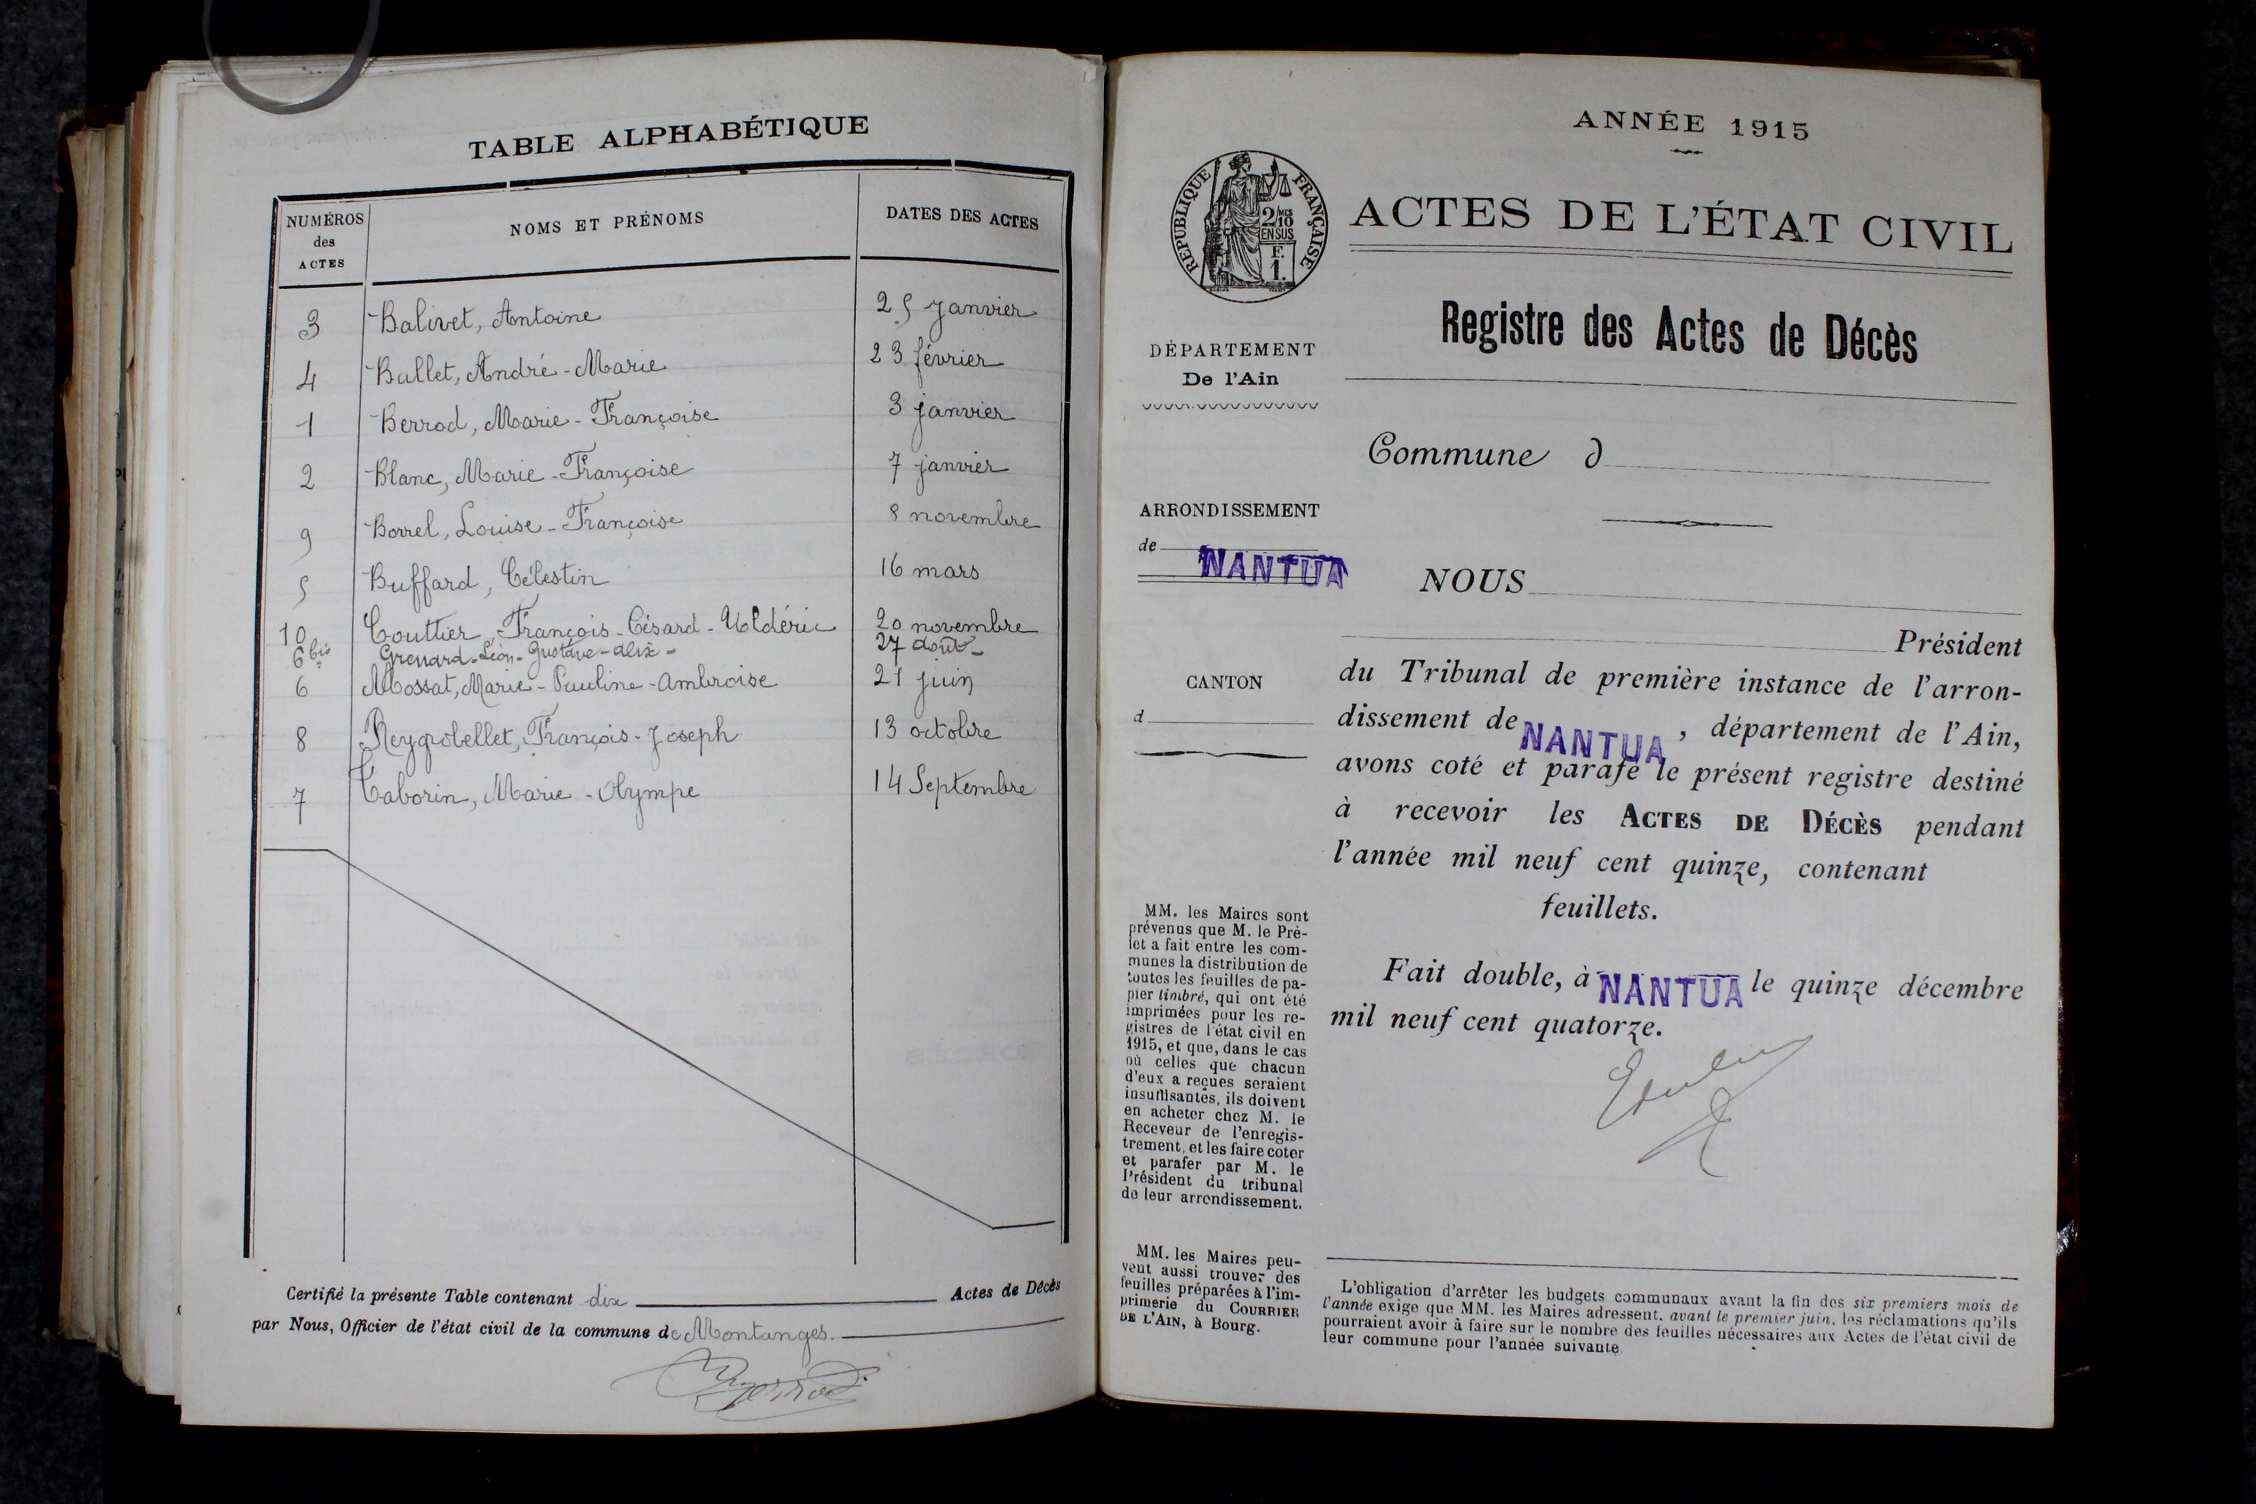 TABLE ALPHABÉTIQUE
NUMÉROS des ACTES NOMS ET PRÉNOMS DATES DES ACTES
3 Balivet, Antoine 25 janvier
4 Ballet, André-Marie 23 février
1 Berrod, Marie-Françoise 3 janvier
2 Blanc, Marie-Françoise 7 janvier
9 Borrel, Louise-Françoise 8 novembre
5 Buffard, Célestin 16 mars
10 Couttier, François-Césard-Uldéric 20 novembre
6 bis Grenard-Léon-Gustave-alix- 27 août-
6 Mossat, Marie-Pauline-Ambroise 21 juin
8 Reygrobellet, François-Joseph 13 octobre
7 Taborin, Marie-Olympe 14 Septembre
Certifié la présente Table contenant dix Actes de Décès
par Nous, Officier de l'état civil de la commune de Montanges.
ANNÉE 1915
RÉPUBLIQUE FRANÇAISE
2/10 MES
EN SUS
F.
1.
ACTES DE L'ÉTAT CIVIL
Registre des Actes de Décès
DÉPARTEMENT
De l'Ain
Commune d
ARRONDISSEMENT
de NANTUA
NOUS
Président
CANTON
d
du Tribunal de première instance de l'arron-
dissement de NANTUA, département de l'Ain,
avons coté et parafé le présent registre destiné
à recevoir les ACTES DE DÉCÈS pendant
l'année mil neuf cent quinze, contenant
feuillets.
Fait double, à NANTUA le quinze décembre
mil neuf cent quatorze.
MM. les Maires sont
prévenus que M. le Pré-
fet a fait entre les com-
munes la distribution de
toutes les feuilles de pa-
pier timbré, qui ont été
imprimées pour les re-
gistres de l'état civil en
1915, et que, dans le cas
où celles que chacun
d'eux a reçues seraient
insuffisantes, ils doivent
en acheter chez M. le
Receveur de l'enregis-
trement, et les faire coter
et parafer par M. le
Président du tribunal
de leur arrondissement.
MM. les Maires peu-
vent aussi trouver des
feuilles préparées à l'im-
primerie du COURRIER
DE L'AIN, à Bourg.
L'obligation d'arrêter les budgets communaux avant la fin des six premiers mois de
l'année exige que MM. les Maires adressent, avant le premier juin, les réclamations qu'ils
pourraient avoir à faire sur le nombre des feuilles nécessaires aux Actes de l'état civil de
leur commune pour l'année suivante.